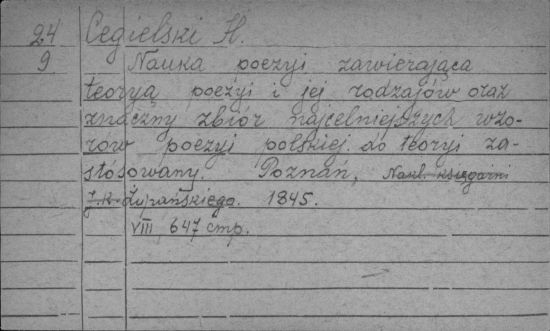 24 Cegielski H.
9 Nauka poezyi zawierająca
teoryą poezyi i jej rodzajów oraz
znaczny zbiór najcelniejszych wzo-
rów poezyi polskiej do teoryi za-
stósowany. Poznań, Nakł. księgarni
J. K. Żupańskiego. 1845.
VIII, 647 стр.